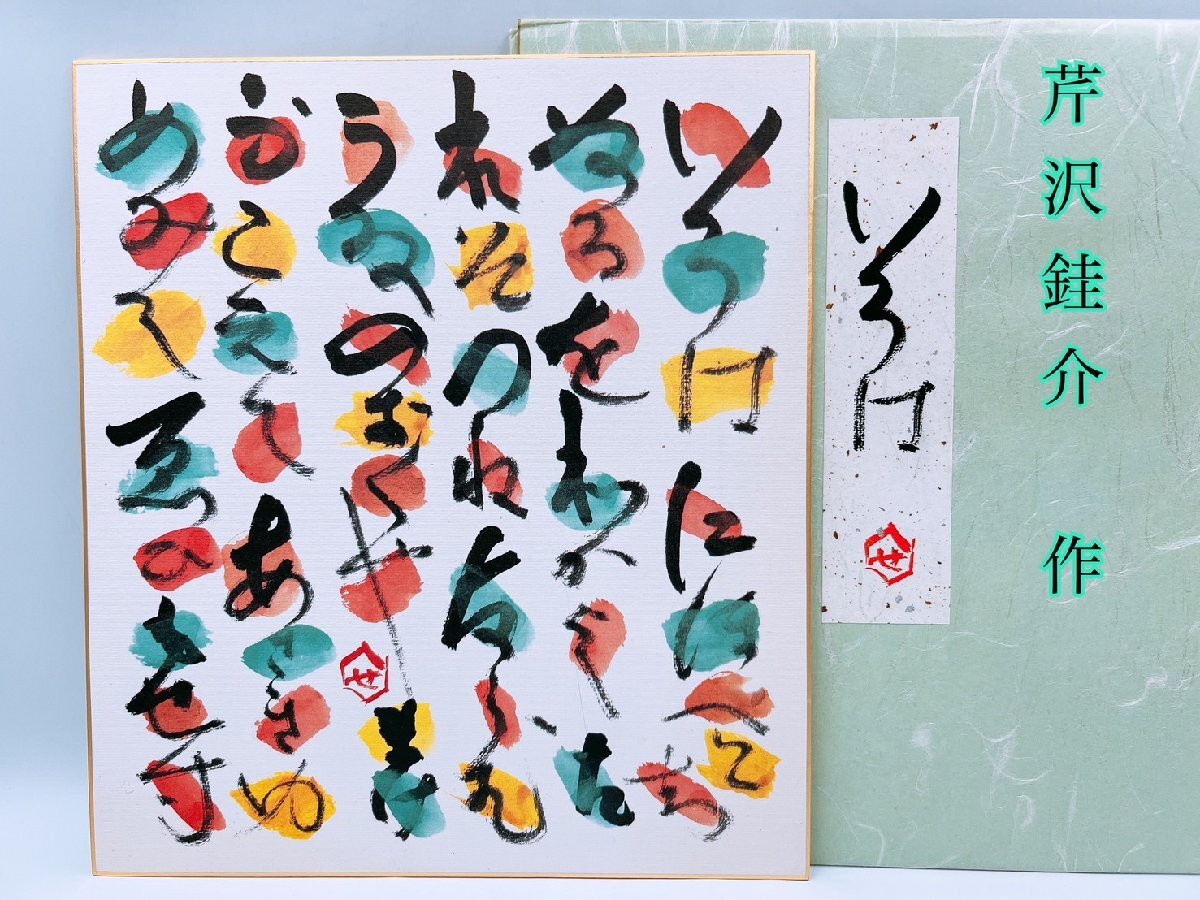 芹沢銈介 作
いろは
せ
いろはにほへとち
りぬるをわかよた
れそつねならむ
うゐのおくやまけ
ふこえてあさきゆ
めみしゑひもせす
せ